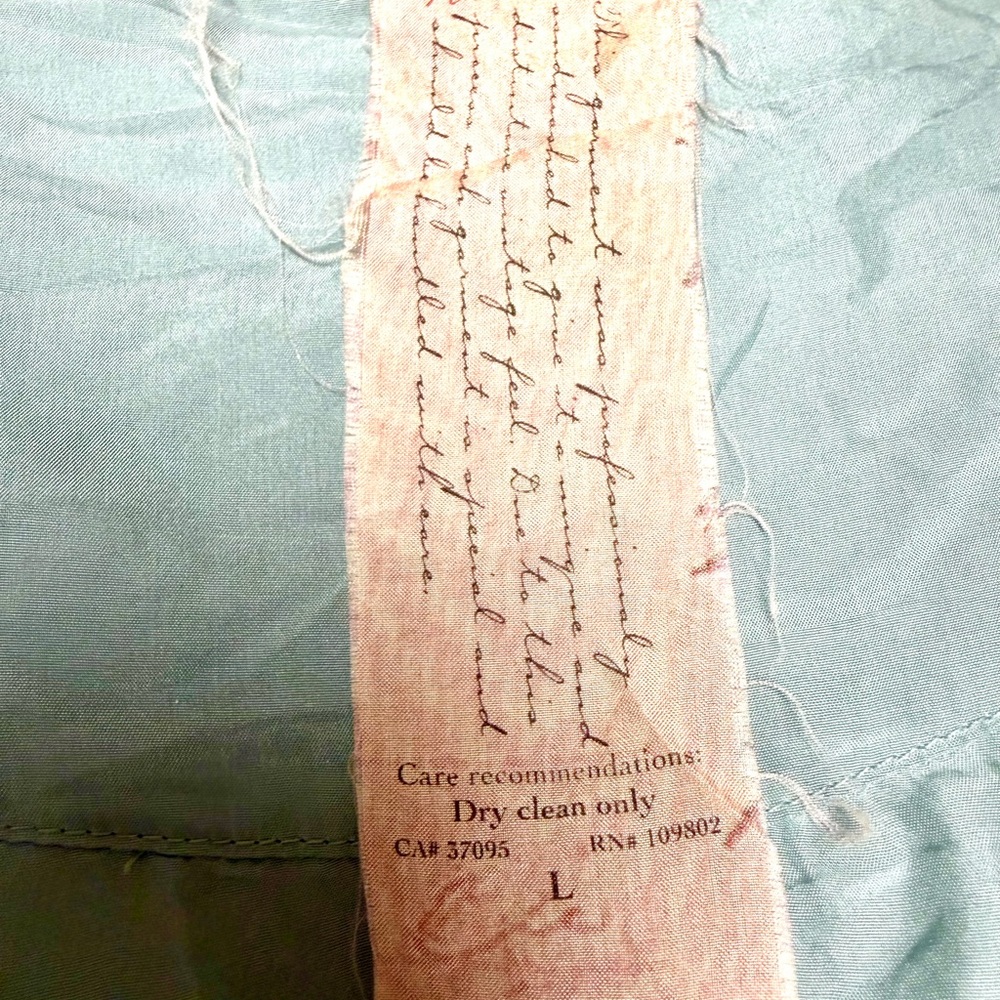 This garment was professionaly
andwashed to give it a unique and
distintive vintage feel. Due to this
process each garment is special and
should be handled with care.
Care recommendations:
Dry clean only
CA# 37095 RN# 109802
L